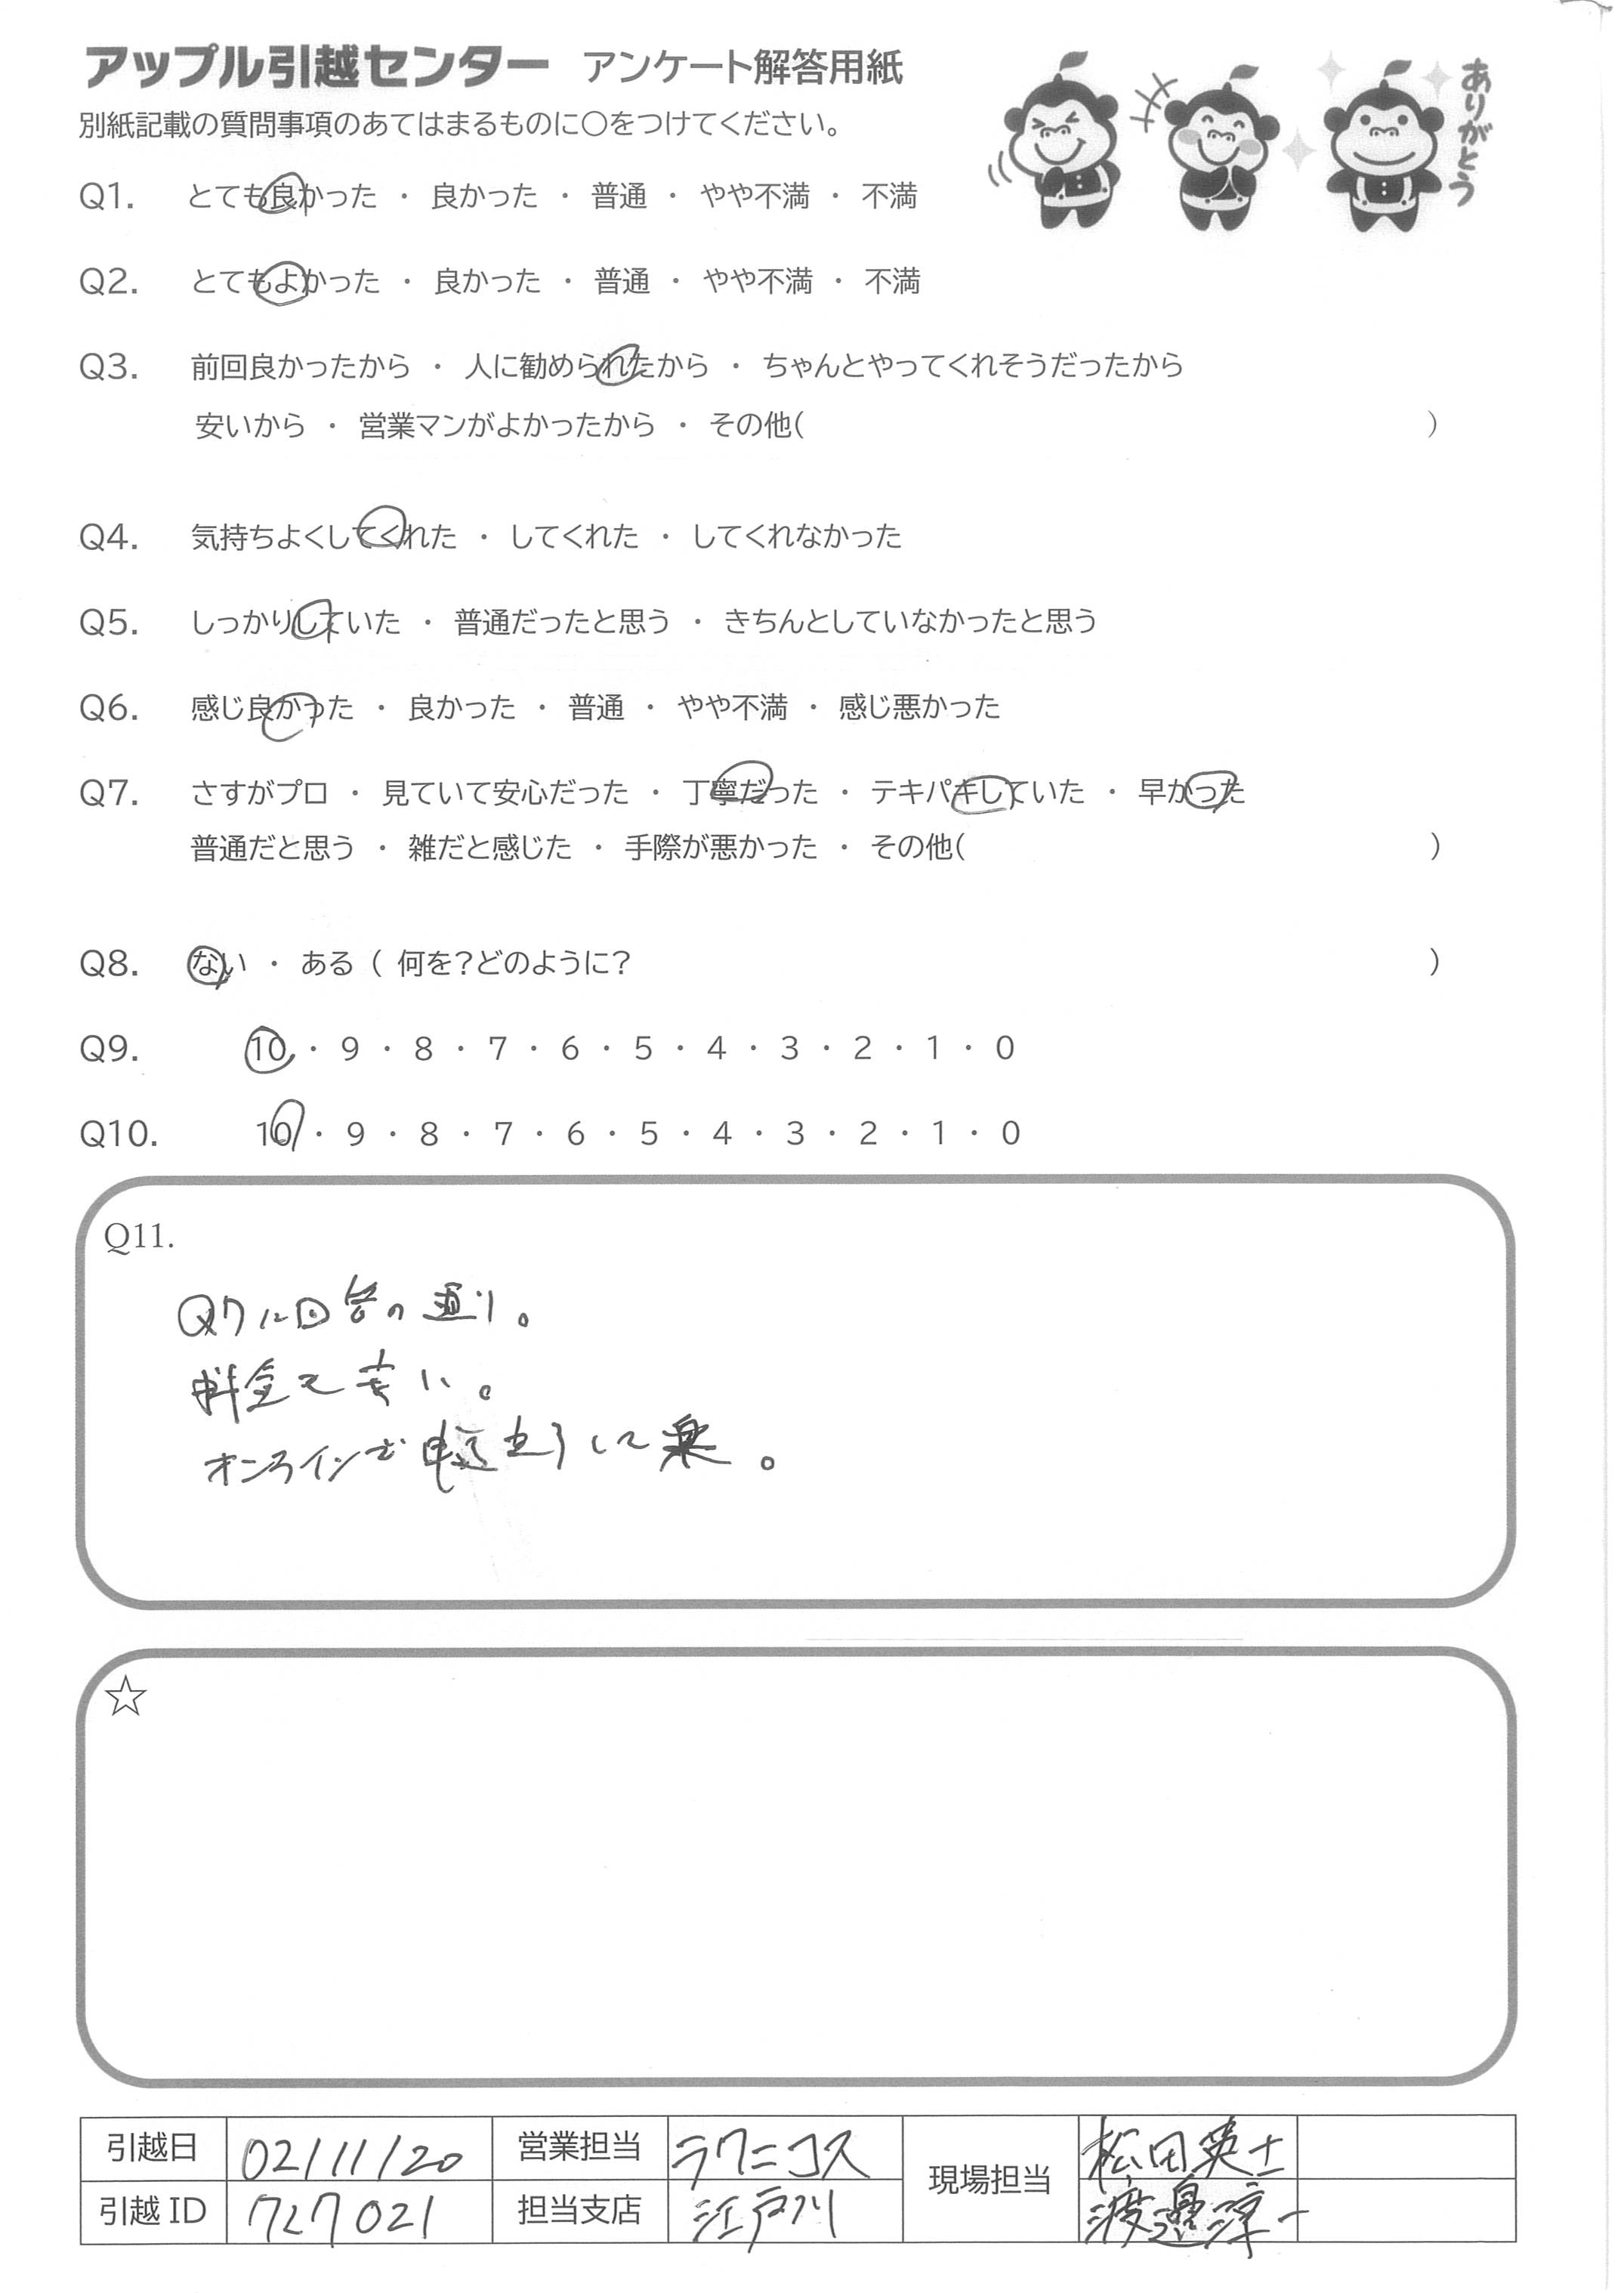 アップル引越センター アンケート解答用紙
ありがとう
別紙記載の質問事項のあてはまるものに〇をつけてください。
Q1. とても良かった ・ 良かった ・ 普通 ・ やや不満 ・ 不満
Q2. とてもよかった ・ 良かった ・ 普通 ・ やや不満 ・ 不満
Q3. 前回良かったから ・ 人に勧められたから ・ ちゃんとやってくれそうだったから
安いから ・ 営業マンがよかったから ・ その他( )
Q4. 気持ちよくしてくれた ・ してくれた ・ してくれなかった
Q5. しっかりしていた ・ 普通だったと思う ・ きちんとしていなかったと思う
Q6. 感じ良かった ・ 良かった ・ 普通 ・ やや不満 ・ 感じ悪かった
Q7. さすがプロ ・ 見ていて安心だった ・ 丁寧だった ・ テキパキしていた ・ 早かった
普通だと思う ・ 雑だと感じた ・ 手際が悪かった ・ その他( )
Q8. ない ・ ある ( 何を?どのように? )
Q9. 10 ・ 9 ・ 8 ・ 7 ・ 6 ・ 5 ・ 4 ・ 3 ・ 2 ・ 1 ・ 0
Q10. 10 ・ 9 ・ 8 ・ 7 ・ 6 ・ 5 ・ 4 ・ 3 ・ 2 ・ 1 ・ 0
Q11.
Q7に回答の通り。
料金も安い。
オンラインで申込して楽。
☆
引越日 02/11/20 営業担当 ラクニコス 現場担当 松田英士
引越ID 727021 担当支店 江戸川 渡邊淳一